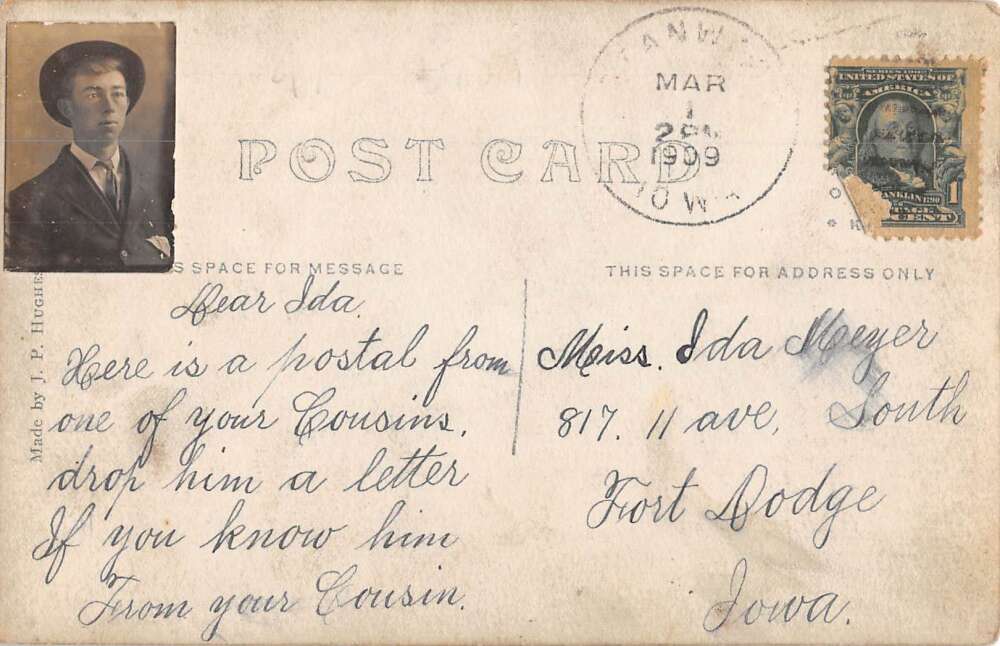 POST CARD
MAR
1
1909
IOWA
SERIES 1902
UNITED STATES OF
AMERICA
FRANKLIN 1790
1
CENT
S SPACE FOR MESSAGE
THIS SPACE FOR ADDRESS ONLY
Made by J. P. HUGHES
Dear Ida.
Here is a postal from
one of your Cousins.
drop him a letter
If you know him
From your Cousin.
Miss. Ida Meyer
817. 11 ave. South
Fort Dodge
Iowa.